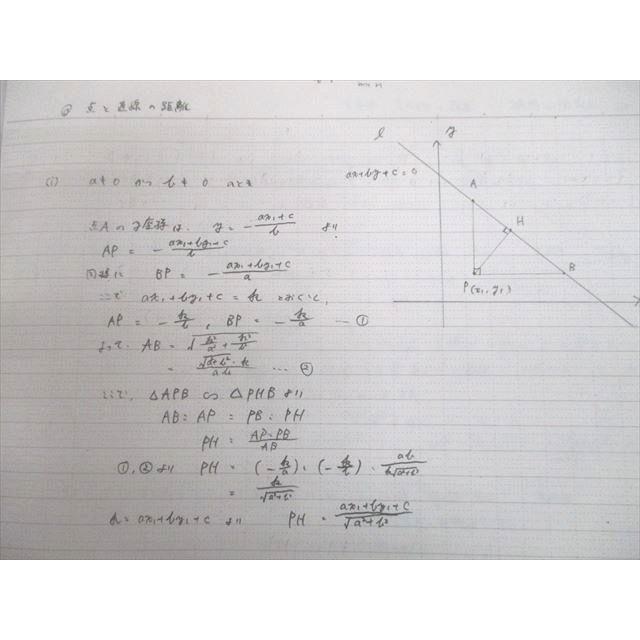 点と直線の距離
(i) a≠0 かつ b≠0 のとき
点Aのy座標は、 y = -\frac{ax₁+c}{b} より
AP = -\frac{ax₁+by₁+c}{b}
同様に BP = -\frac{ax₁+by₁+c}{a}
ここで ax₁+by₁+c = k とおくと、
AP = -\frac{k}{b} , BP = -\frac{k}{a} … ①
よって、 AB = \sqrt{\frac{k²}{a²}+\frac{k²}{b²}}
= \frac{\sqrt{a²+b²}・k}{ab} … ②
ここで、 △APB ∽ △PHB より
AB : AP = PB : PH
PH = \frac{AP・PB}{AB}
①,②より PH = (-\frac{k}{a})・(-\frac{k}{b})・\frac{ab}{k\sqrt{a²+b²}}
= \frac{k}{\sqrt{a²+b²}}
k = ax₁+by₁+c より PH = \frac{ax₁+by₁+c}{\sqrt{a²+b²}}
l
y
ax+by+c=0
A
H
B
P(x₁,y₁)